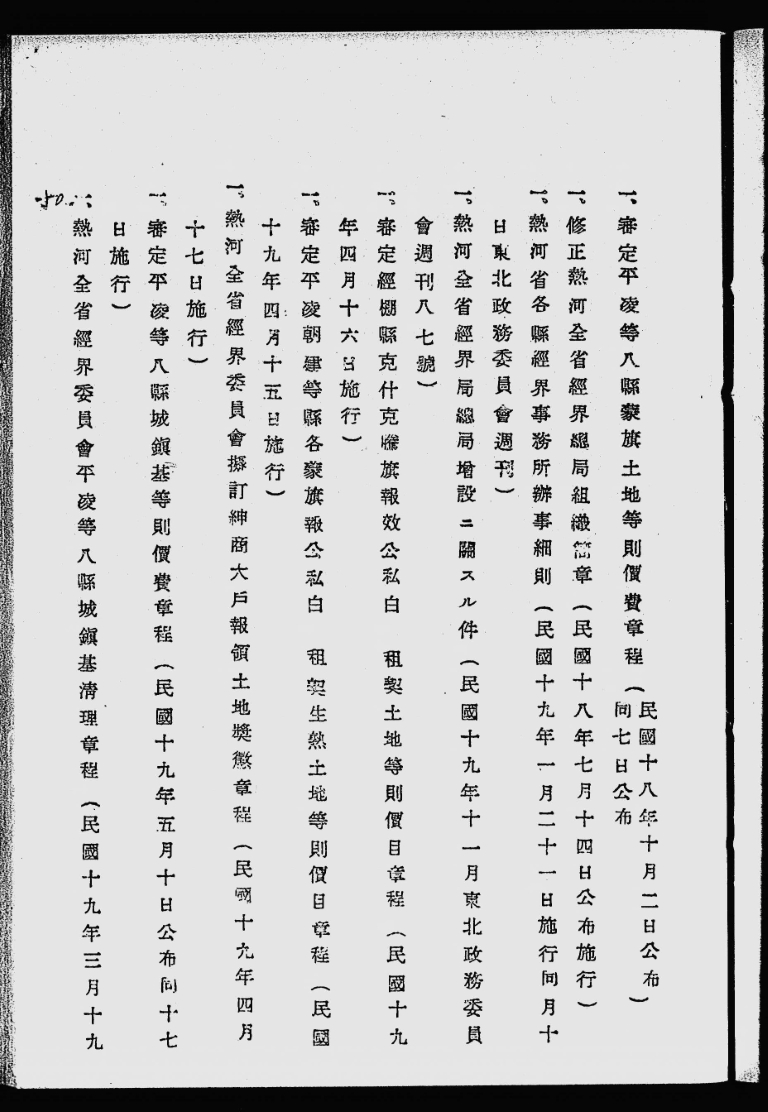 一、審定平凌等八縣蒙旗土地等則價費章程（民國十八年十月二日公布
同七日公布）
一、修正熱河全省經界總局組織簡章（民國十八年七月十四日公布施行）
一、熱河省各縣經界事務所辦事細則（民國十九年一月二十一日施行同月十
日東北政務委員會週刊）
一、熱河全省經界局總局增設ニ關スル件（民國十九年十一月東北政務委員
會週刊八七號）
一、審定經棚縣克什克騰旗報效公私白 租契土地等則價目章程（民國十九
年四月十六日施行）
一、審定平凌朝建等縣各蒙旗報公私白 租契生熱土地等則價目章程（民國
十九年四月十五日施行）
一、熱河全省經界委員會擬訂紳商大戶報領土地獎懲章程（民國十九年四月
十七日施行）
一、審定平凌等八縣城鎮基等則價費章程（民國十九年五月十日公布同十七
日施行）
一、熱河全省經界委員會平凌等八縣城鎮基清理章程（民國十九年三月十九